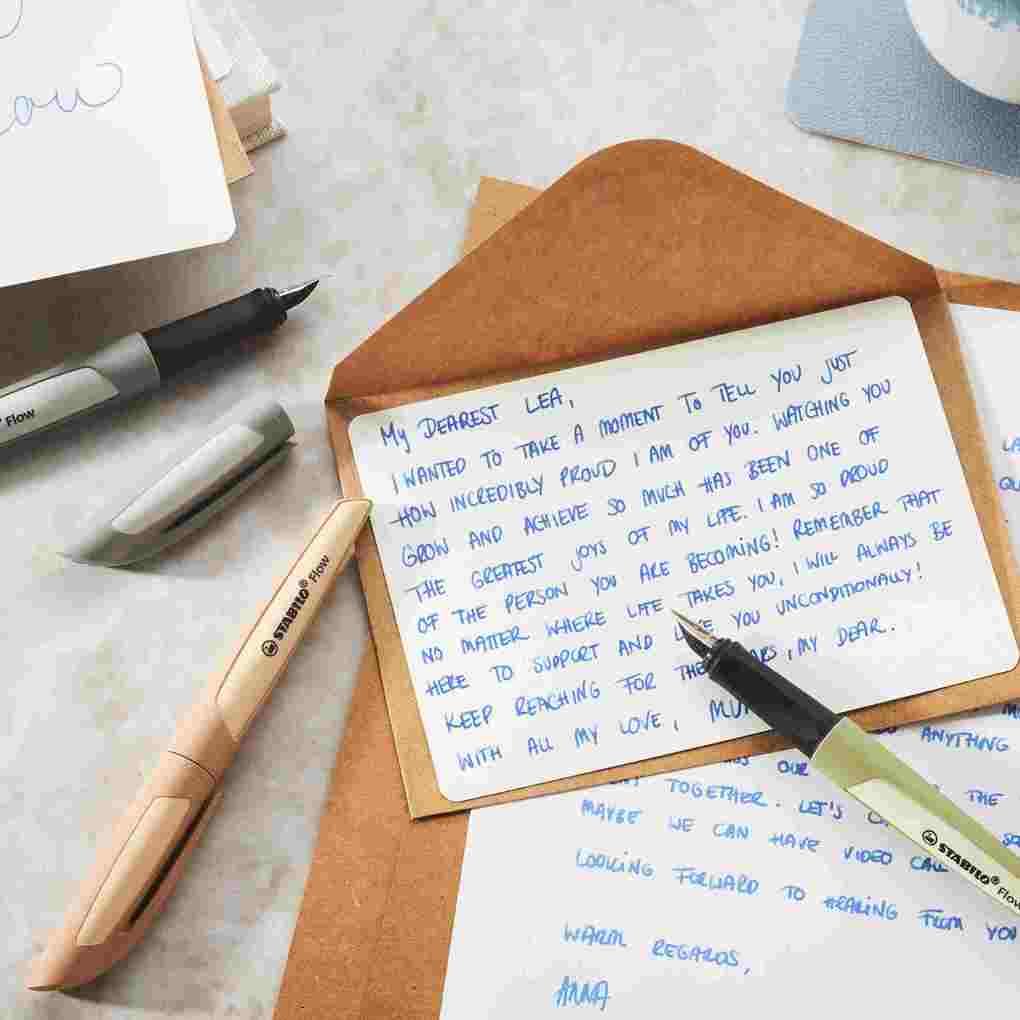 Flow
STABILO® Flow
My DEAREST LEA,
I WANTED TO TAKE A MOMENT TO TELL YOU JUST
HOW INCREDIBLY PROUD I AM OF YOU. WATCHING YOU
GROW AND ACHIEVE SO MUCH HAS BEEN ONE OF
THE GREATEST JOYS OF MY LIFE. I AM SO PROUD
OF THE PERSON YOU ARE BECOMING! REMEMBER THAT
NO MATTER WHERE LIFE TAKES YOU, I WILL ALWAYS BE
HERE TO SUPPORT AND YOU UNCONDITIONALLY!
KEEP REACHING FOR THE , MY DEAR.
WITH ALL MY LOVE,
ANYTHING
OUR THE
TOGETHER. LET'S
MAYBE WE CAN HAVE VIDEO
LOOKING FORWARD TO HEARING FROM YOU
WARM REGARDS,
ANNA
STABILO® Flow